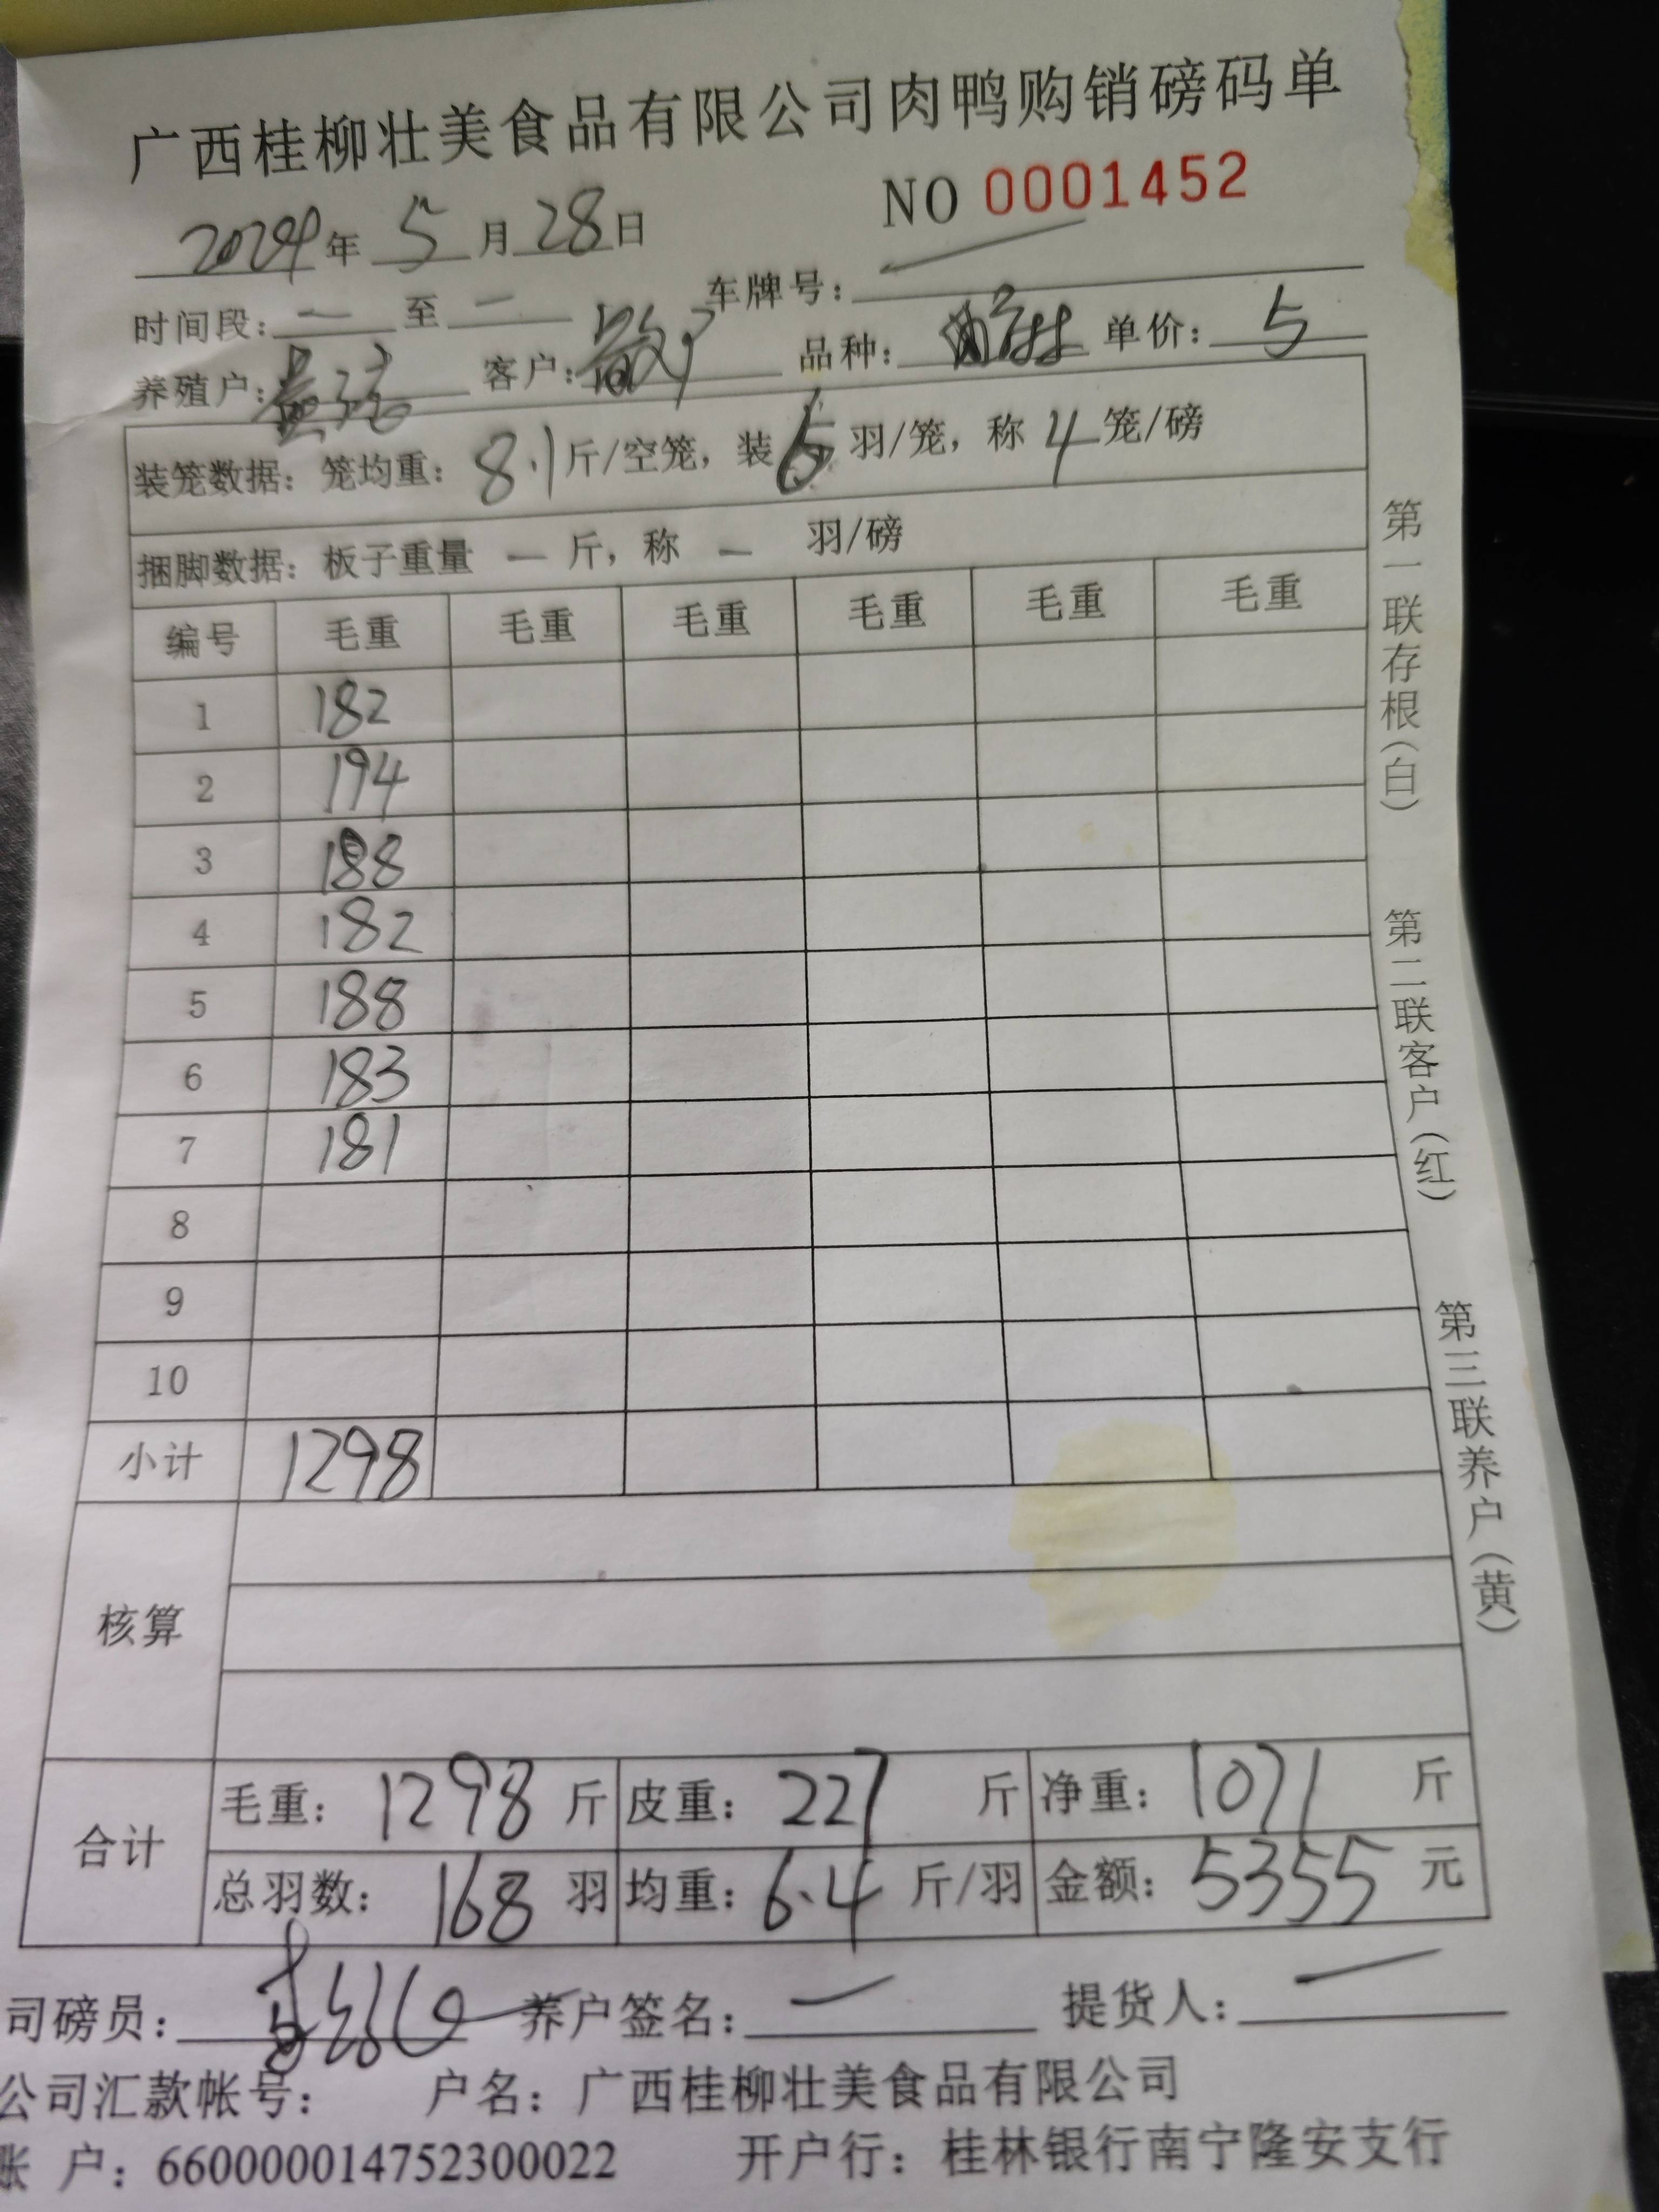 广西桂柳壮美食品有限公司肉鸭购销磅码单
NO 0001452
2024年 5 月 28 日
时间段: 一 至 一 车牌号: 一
养殖户: 客户: 散户 品种: 单价: 5
装笼数据: 笼均重: 8.1 斤/空笼, 装 6 羽/笼, 称 4 笼/磅
捆脚数据: 板子重量 一 斤, 称 一 羽/磅
编号 毛重 毛重 毛重 毛重 毛重 毛重
1 182
2 194
3 188
4 182
5 188
6 183
7 181
8
9
10
小计 1298
核算
合计 毛重: 1298 斤 皮重: 227 斤 净重: 1071 斤
总羽数: 168 羽 均重: 6.4 斤/羽 金额: 5355 元
司磅员: 养户签名: 一 提货人: 一
公司汇款帐号: 户名: 广西桂柳壮美食品有限公司
账 户: 660000014752300022 开户行: 桂林银行南宁隆安支行
第一联存根(白) 第二联客户(红) 第三联养户(黄)